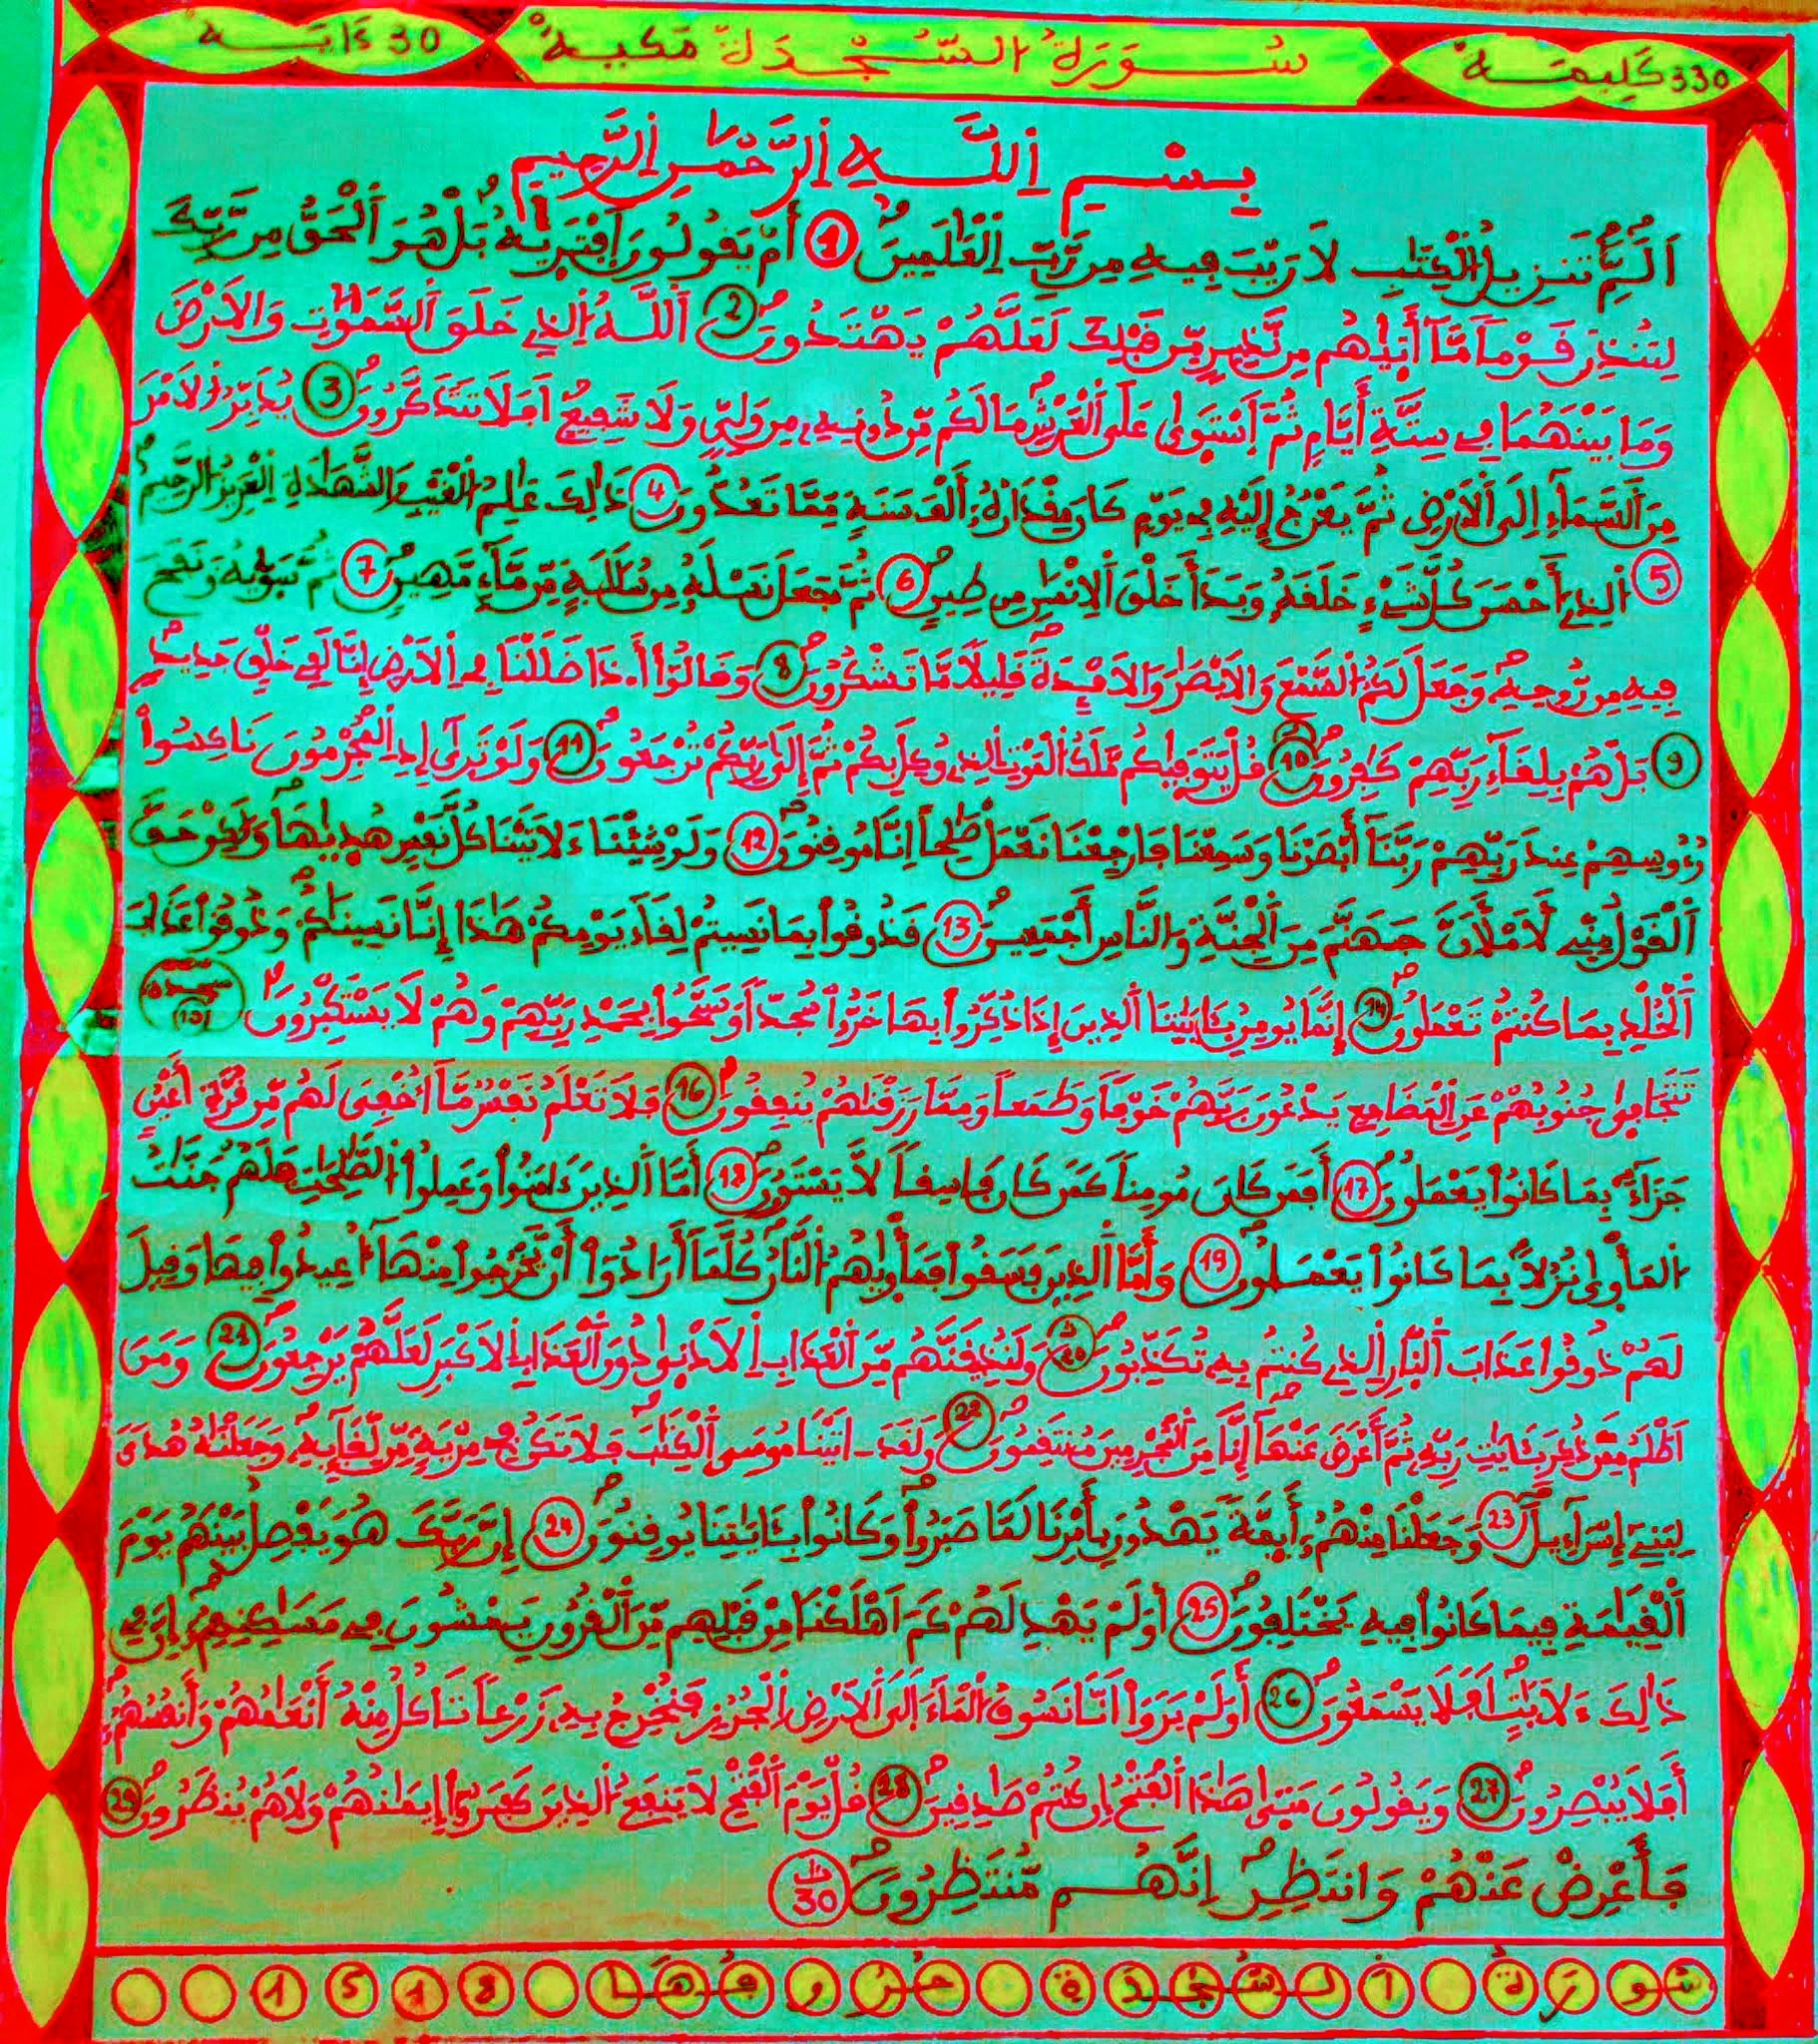 330 كَلِيمَة سُورَةُ السَّجْدَةِ مَكِّيَّة 30 ءَايَة
بِسْمِ اِللَّهِ اِلرَّحْمَٰنِ اِلرَّحِيمِ
أَلَمِّٓ تَنزِيلُ اُلْكِتَٰبِ لَا رَيْبَ فِيهِ مِن رَّبِّ اِلْعَٰلَمِينَ 1 أَمْ يَقُولُونَ اَفْتَرَيٰهُ بَلْ هُوَ اَلْحَقُّ مِن رَّبِّكَ
لِتُنذِرَ قَوْماً مَّآ أَتَيٰهُم مِّن نَّذِيرٍ مِّن قَبْلِكَ لَعَلَّهُمْ يَهْتَدُونَ 2 اَللَّهُ اُلذِے خَلَقَ اَلسَّمَٰوَٰتِ وَالَارْضَ
وَمَا بَيْنَهُمَا فِے سِتَّةِ أَيَّامٍ ثُمَّ اَسْتَوَىٰ عَلَى اَلْعَرْشِ مَا لَكُم مِّن دُونِهِۦ مِنْ وَلِيٍّ وَلَا شَفِيعٍ اَفَلَا تَتَذَكَّرُونَ 3 يُدَبِّرُ اُلَامْرَ
مِنَ اَلسَّمَآءِ اِلَى اَلَارْضِ ثُمَّ يَعْرُجُ إِلَيْهِ فِے يَوْمٍ كَانَ مِقْدَارُهُۥٓ أَلْفَ سَنَةٍ مِّمَّا تَعُدُّونَ 4 ذَٰلِكَ عَٰلِمُ اُلْغَيْبِ وَالشَّهَٰدَةِ اِلْعَزِيزُ اُلرَّحِيمُ
5 اُلذِےٓ أَحْسَنَ كُلَّ شَےْءٍ خَلَقَهُۥ وَبَدَأَ خَلْقَ اَلِانسَٰنِ مِن طِينٍ 6 ثُمَّ جَعَلَ نَسْلَهُۥ مِن سُلَٰلَةٍ مِّن مَّآءٍ مَّهِينٍ 7 ثُمَّ سَوّٰيهُ وَنَفَخَ
فِيهِ مِن رُّوحِهِۦ وَجَعَلَ لَكُمُ اُلسَّمْعَ وَالَابْصَٰرَ وَالَافْـِٕدَةَ قَلِيلًا مَّا تَشْكُرُونَ 8 وَقَالُوٓاْ أَ.ذَا ضَلَلْنَا فِے اِلَارْضِ إِنَّا لَفِے خَلْقٍ جَدِيدٍ
9 بَلْ هُم بِلِقَآءِ رَبِّهِمْ كَٰفِرُونَ 10 قُلْ يَتَوَفّٰيكُم مَّلَكُ اُلْمَوْتِ اِلذِے وُكِّلَ بِكُمْ ثُمَّ إِلَىٰ رَبِّكُمْ تُرْجَعُونَ 11 وَلَوْ تَرَىٰٓ إِذِ اِلْمُجْرِمُونَ نَاكِسُواْ
رُءُوسِهِمْ عِندَ رَبِّهِمْ رَبَّنَآ أَبْصَرْنَا وَسَمِعْنَا فَارْجِعْنَا نَعْمَلْ صَٰلِحاً اِنَّا مُوقِنُونَ 12 وَلَوْ شِئْنَا ءَلَاتَيْنَا كُلَّ نَفْسٍ هُدَيٰهَا وَلَٰكِنْ حَقَّ
اَلْقَوْلُ مِنِّے لَأَمْلَأَنَّ جَهَنَّمَ مِنَ اَلْجِنَّةِ وَالنَّاسِ أَجْمَعِينَ 13 فَذُوقُواْ بِمَا نَسِيتُمْ لِقَآءَ يَوْمِكُمْ هَٰذَآ إِنَّا نَسِينَٰكُمْ وَذُوقُواْ عَذَابَ
اَلْخُلْدِ بِمَا كُنتُمْ تَعْمَلُونَ 14 إِنَّمَا يُومِنُ بِـَٔايَٰتِنَا اَلذِينَ إِذَا ذُكِّرُواْ بِهَا خَرُّواْ سُجَّداً وَسَبَّحُواْ بِحَمْدِ رَبِّهِمْ وَهُمْ لَا يَسْتَكْبِرُونَ سجدة 15
تَتَجَافَىٰ جُنُوبُهُمْ عَنِ اِلْمَضَاجِعِ يَدْعُونَ رَبَّهُمْ خَوْفاً وَطَمَعاً وَمِمَّا رَزَقْنَٰهُمْ يُنفِقُونَ 16 فَلَا تَعْلَمُ نَفْسٌ مَّآ أُخْفِيَ لَهُم مِّن قُرَّةِ أَعْيُنٍ
جَزَآءً بِمَا كَانُواْ يَعْمَلُونَ 17 أَفَمَن كَانَ مُومِناً كَمَن كَانَ فَاسِقاً لَّا يَسْتَوُۥنَ 18 أَمَّا اَلذِينَ ءَامَنُواْ وَعَمِلُواْ اُلصَّٰلِحَٰتِ فَلَهُمْ جَنَّٰتُ
اُلْمَأْوَىٰ نُزُلًا بِمَا كَانُواْ يَعْمَلُونَ 19 وَأَمَّا اَلذِينَ فَسَقُواْ فَمَأْوَيٰهُمُ اُلنَّارُ كُلَّمَآ أَرَادُوٓاْ أَنْ يَّخْرُجُواْ مِنْهَآ أُعِيدُواْ فِيهَا وَقِيلَ
لَهُمْ ذُوقُواْ عَذَابَ اَلنَّارِ اِلذِے كُنتُم بِهِۦ تُكَذِّبُونَ 20 وَلَنُذِيقَنَّهُم مِّنَ اَلْعَذَابِ اِلَادْنَىٰ دُونَ اَلْعَذَابِ اِلَاكْبَرِ لَعَلَّهُمْ يَرْجِعُونَ 21 وَمَنَ
اَظْلَمُ مِمَّن ذُكِّرَ بِـَٔايَٰتِ رَبِّهِۦ ثُمَّ أَعْرَضَ عَنْهَآ إِنَّا مِنَ اَلْمُجْرِمِينَ مُنتَقِمُونَ 22 وَلَقَدَ ـ اتَيْنَا مُوسَى اَلْكِتَٰبَ فَلَا تَكُن فِے مِرْيَةٍ مِّن لِّقَآئِهِۦ وَجَعَلْنَٰهُ هُدىً
لِّبَنِےٓ إِسْرَآءِيلَ 23 وَجَعَلْنَا مِنْهُمُۥٓ أَئِمَّةً يَهْدُونَ بِأَمْرِنَا لَمَّا صَبَرُواْ وَكَانُواْ بِـَٔايَٰتِنَا يُوقِنُونَ 24 إِنَّ رَبَّكَ هُوَ يَفْصِلُ بَيْنَهُمْ يَوْمَ
اَلْقِيَٰمَةِ فِيمَا كَانُواْ فِيهِ يَخْتَلِفُونَ 25 أَوَلَمْ يَهْدِ لَهُمْ كَمَ اَهْلَكْنَا مِن قَبْلِهِم مِّنَ اَلْقُرُونِ يَمْشُونَ فِے مَسَٰكِنِهِمُۥٓ إِنَّ فِے
ذَٰلِكَ ءَلَايَٰتٍ اَفَلَا يَسْمَعُونَ 26 أَوَلَمْ يَرَوَاْ اَنَّا نَسُوقُ اُلْمَآءَ اِلَى اَلَارْضِ اِلْجُرُزِ فَنُخْرِجُ بِهِۦ زَرْعاً تَاكُلُ مِنْهُ أَنْعَٰمُهُمْ وَأَنفُسُهُمُۥٓ
أَفَلَا يُبْصِرُونَ 27 وَيَقُولُونَ مَتَىٰ هَٰذَا اَلْفَتْحُ إِن كُنتُمْ صَٰدِقِينَ 28 قُلْ يَوْمَ اَلْفَتْحِ لَا يَنفَعُ اُلذِينَ كَفَرُوٓاْ إِيمَٰنُهُمْ وَلَا هُمْ يُنظَرُونَ 29
فَأَعْرِضْ عَنْهُمْ وَانتَظِرِ اِنَّهُم مُّنتَظِرُونَ 30
سُورَةُ اَلسَّجْدَةِ حُرُوفُهَا 1518